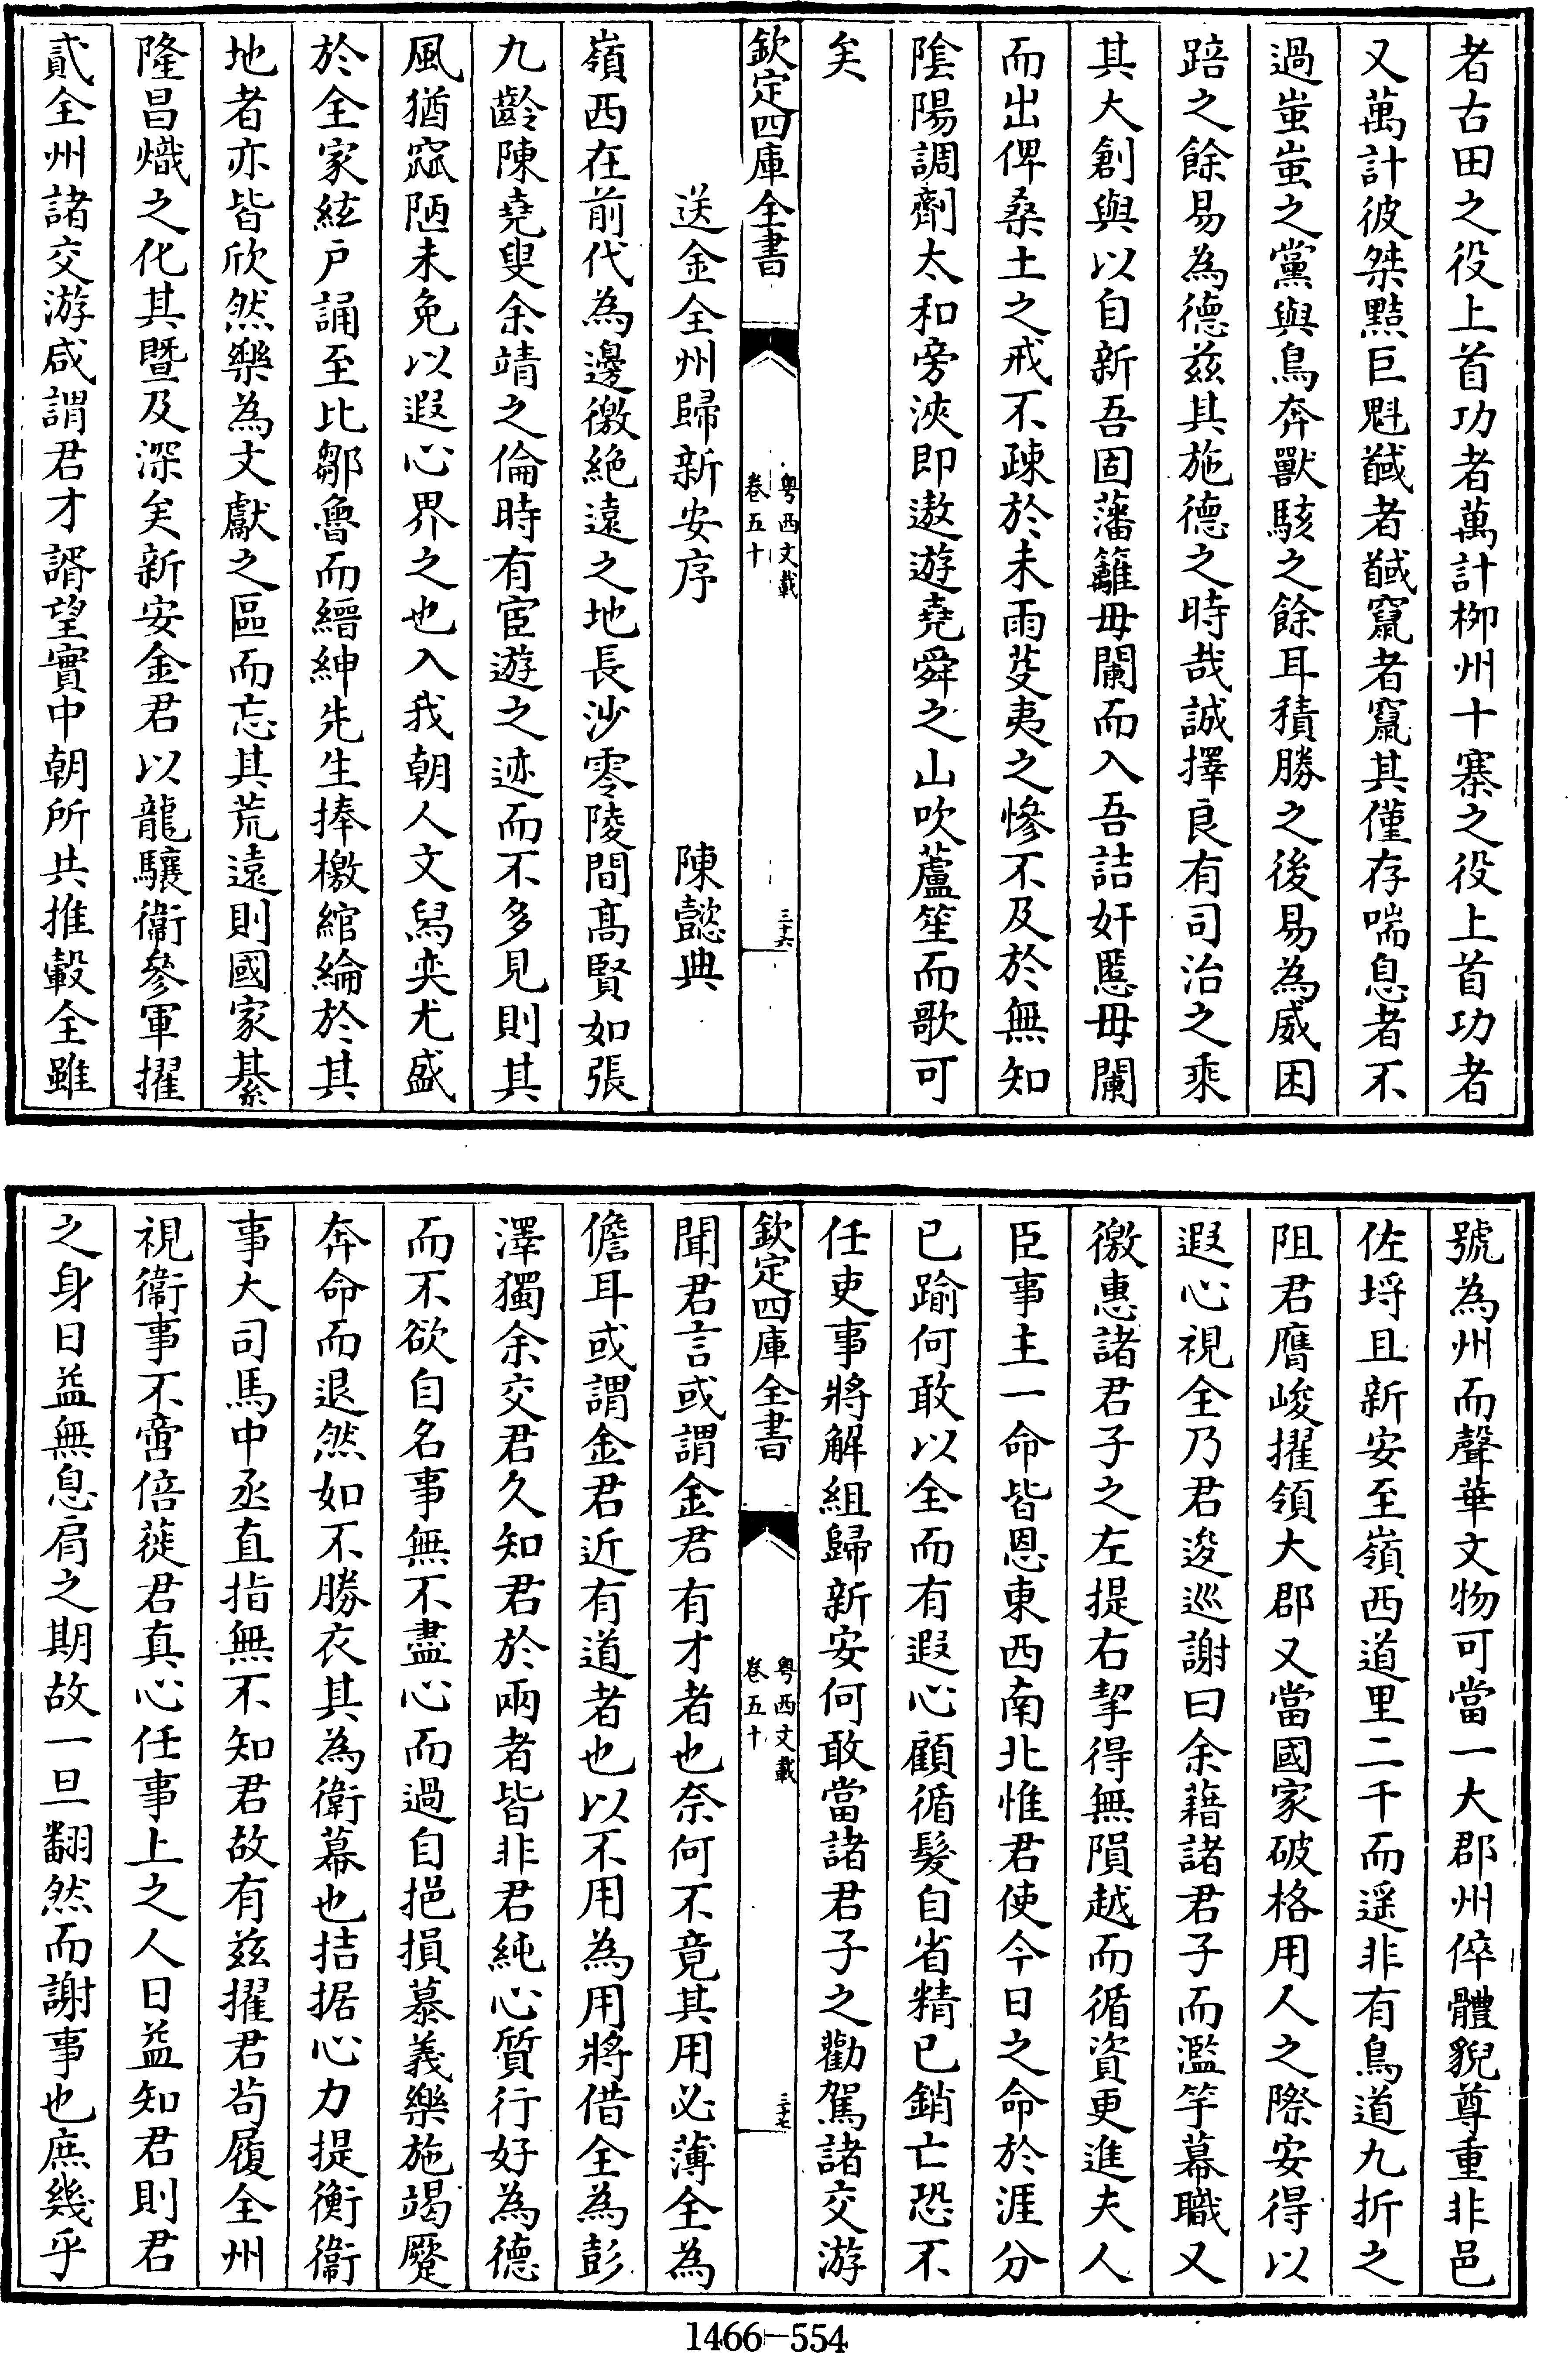 者古田之役上首功者萬計栁州十寨之役上首功者
又萬計彼桀黠巨魁馘者馘竄者竄其僅存喘息者不
過蚩蚩之黨與鳥奔獸駭之餘耳積勝之後易為威困
踣之餘易為德兹其施德之時哉誠擇良有司治之乘
其大創與以自新吾固藩籬毋闌而入吾詰奸慝毋闌
而出俾桑土之戒不疎於未雨芟夷之慘不及於無知
隂陽調劑太和旁浹即遨遊堯舜之山吹蘆笙而歌可
矣
欽定四庫全書
粤西文載
卷五十
三十六
送金全州歸新安序
陳懿典
嶺西在前代為邊徼絶遠之地長沙零陵間髙賢如張
九齡陳堯叟余靖之倫時有宦遊之迹而不多見則其
風猶窳陋未免以遐心界之也入我朝人文舄奕尤盛
於全家絃户誦至比鄒魯而縉紳先生捧檄綰綸於其
地者亦皆欣然樂為文獻之區而忘其荒遠則國家綦
隆昌熾之化其暨及深矣新安金君以龍驤衞參軍擢
貳全州諸交游咸謂君才諝望實中朝所共推轂全雖
號為州而聲華文物可當一大郡州倅體貌尊重非邑
佐埒且新安至嶺西道里二千而遥非有鳥道九折之
阻君膺峻擢領大郡又當國家破格用人之際安得以
遐心視全乃君逡巡謝曰余藉諸君子而濫竽幕職又
徼惠諸君子之左提右挈得無隕越而循資更進夫人
臣事主一命皆恩東西南北惟君使今日之命於涯分
已踰何敢以全而有遐心顧循髮自省精已銷亡恐不
任吏事將解組歸新安何敢當諸君子之勸駕諸交游
欽定四庫全書
粤西文載
卷五十
三十七
聞君言或謂金君有才者也奈何不竟其用必薄全為
儋耳或謂金君近有道者也以不用為用將借全為彭
澤獨余交君久知君於兩者皆非君純心質行好為德
而不欲自名事無不盡心而過自挹損慕義樂施竭蹷
奔命而退然如不勝衣其為衛幕也拮据心力提衡衞
事大司馬中丞直指無不知君故有兹擢君茍履全州
視衞事不啻倍蓰君真心任事上之人日益知君則君
之身日益無息肩之期故一旦翻然而謝事也庶幾乎
1466-554